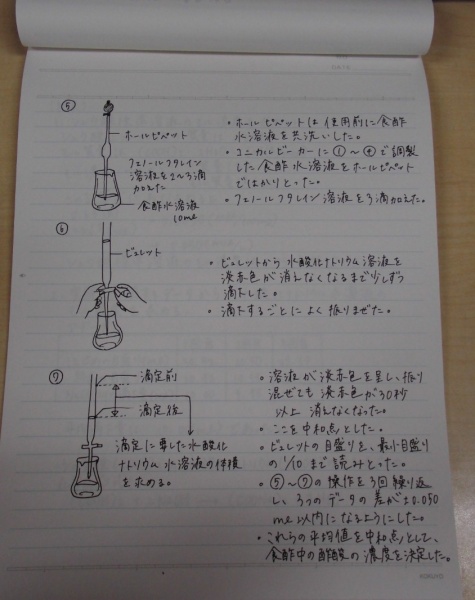 ⑤
ホールピペット
フェノールフタレイン
溶液を2~3滴
加えた
食酢水溶液
10ml
・ホールピペットは使用前に食酢
水溶液を共洗いした。
・コニカルビーカーに①~④で調製
した食酢水溶液をホールピペット
ではかりとった。
・フェノールフタレイン溶液を3滴加えた。
⑥
ビュレット
・ビュレットから水酸化ナトリウム溶液を
淡赤色が消えなくなるまで少しずつ
滴下した。
・滴下するごとによく振りまぜた。
⑦
滴定前
滴定後
滴定に要した水酸化
ナトリウム水溶液の体積
を求める。
・溶液が淡赤色を呈し、振り
混ぜても淡赤色が30秒
以上消えなくなった。
・ここを中和点とした。
・ビュレットの目盛りを、最小目盛り
の1/10まで読みとった。
・⑤~⑦の操作を3回繰り返
し、3つのデータの差が±0.050
ml以内になるようにした。
・これらの平均値を中和点として、
食酢中の酢酸の濃度を決定した。
KOKUYO